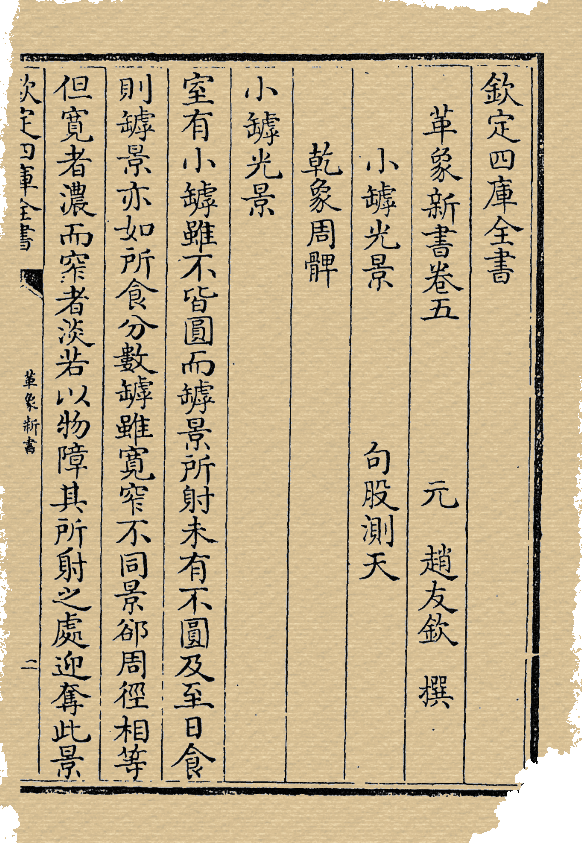 欽定四庫全書
革象新書卷五 元 趙友欽 撰
小罅光景 句股測天
乾象周髀
小罅光景
室有小罅雖不皆圓而罅景所射未有不圓及至日食
則罅景亦如所食分數罅雖寬窄不同景郤周徑相等
但寬者濃而窄者淡若以物障其所射之處迎奪此景
欽定四庫全書
革象新書